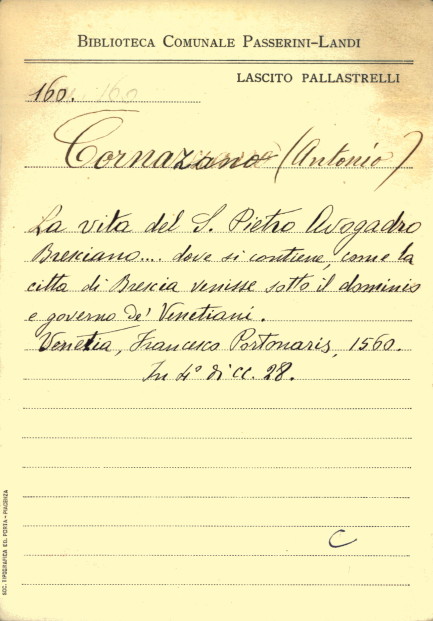 BIBLIOTECA COMUNALE PASSERINI-LANDI
LASCITO PALLASTRELLI
160. 160
Cornazano (Antonio)
La vita del S. Pietro Avogadro
Bresciano.... dove si contiene, come la
città di Brescia venisse sotto il dominio
e governo de' Venetiani.
Venetia, Francesco Portonaris, 1560.
In 4° di cc. 28.
C
SOC. TIPOGRAFICA ED. PORTA - PIACENZA